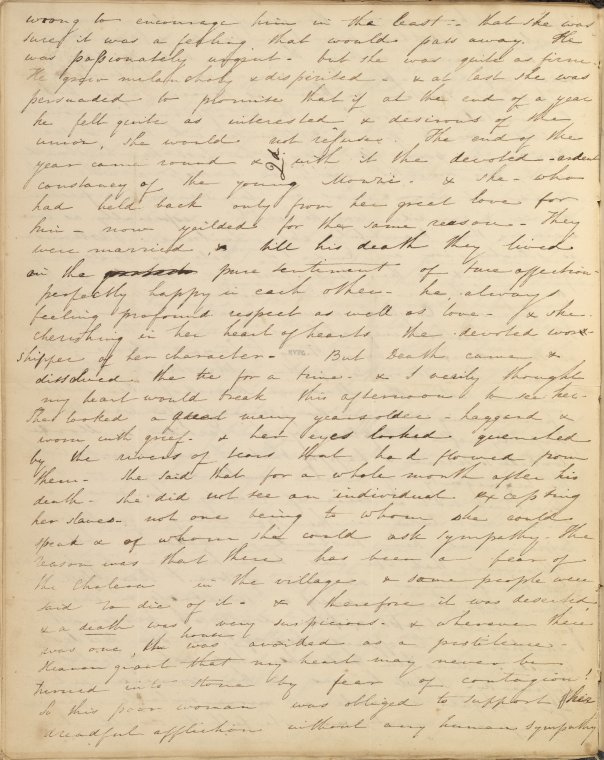 wrong to encourage him in the least - that she was
sure it was a feeling that would pass away. He
was passionately urgent - but she was quite as firm
He grew melancholy & dispirited - & at last she was
persuaded to promise that if at the end of a year
he felt quite as interested & desirous of the
union, she would not refuse. The end of the
year came round & with it the devoted - ardent
constancy of the young - & she - who
had held back only from her great love for
him - now yeilded for the same reason - They
were married, & till his death they lived
in the pure sentiment of true affection -
perfectly happy in each other - he always
feeling profound respect as well as love - & she
cherishing in her heart of hearts the devoted wor-
shipper of her character - But Death came &
dissolved the tie for a time - & I verily thought
my heart would break this afternoon to see her -
She looked a great many years older - haggard &
worn with grief - & her eyes looked quenched
by the rivers of tears that had flowed from
them - She said that for a whole month after his
death - she did not see an individual excepting
her slaves - not one being to whom she could
speak & of whom she could ask sympathy - The
reason was that there has been a fear of
the Cholera in the village & some people were
said to die of it - & therefore it was deserted
& a death was very suspicious - & wherever there
was one, the house was avoided as a pestilence -
Heaven grant that my heart may never be
turned into stone by fear of contagion!
So this poor woman was obliged to support this
dreadful affliction without any human sympathy